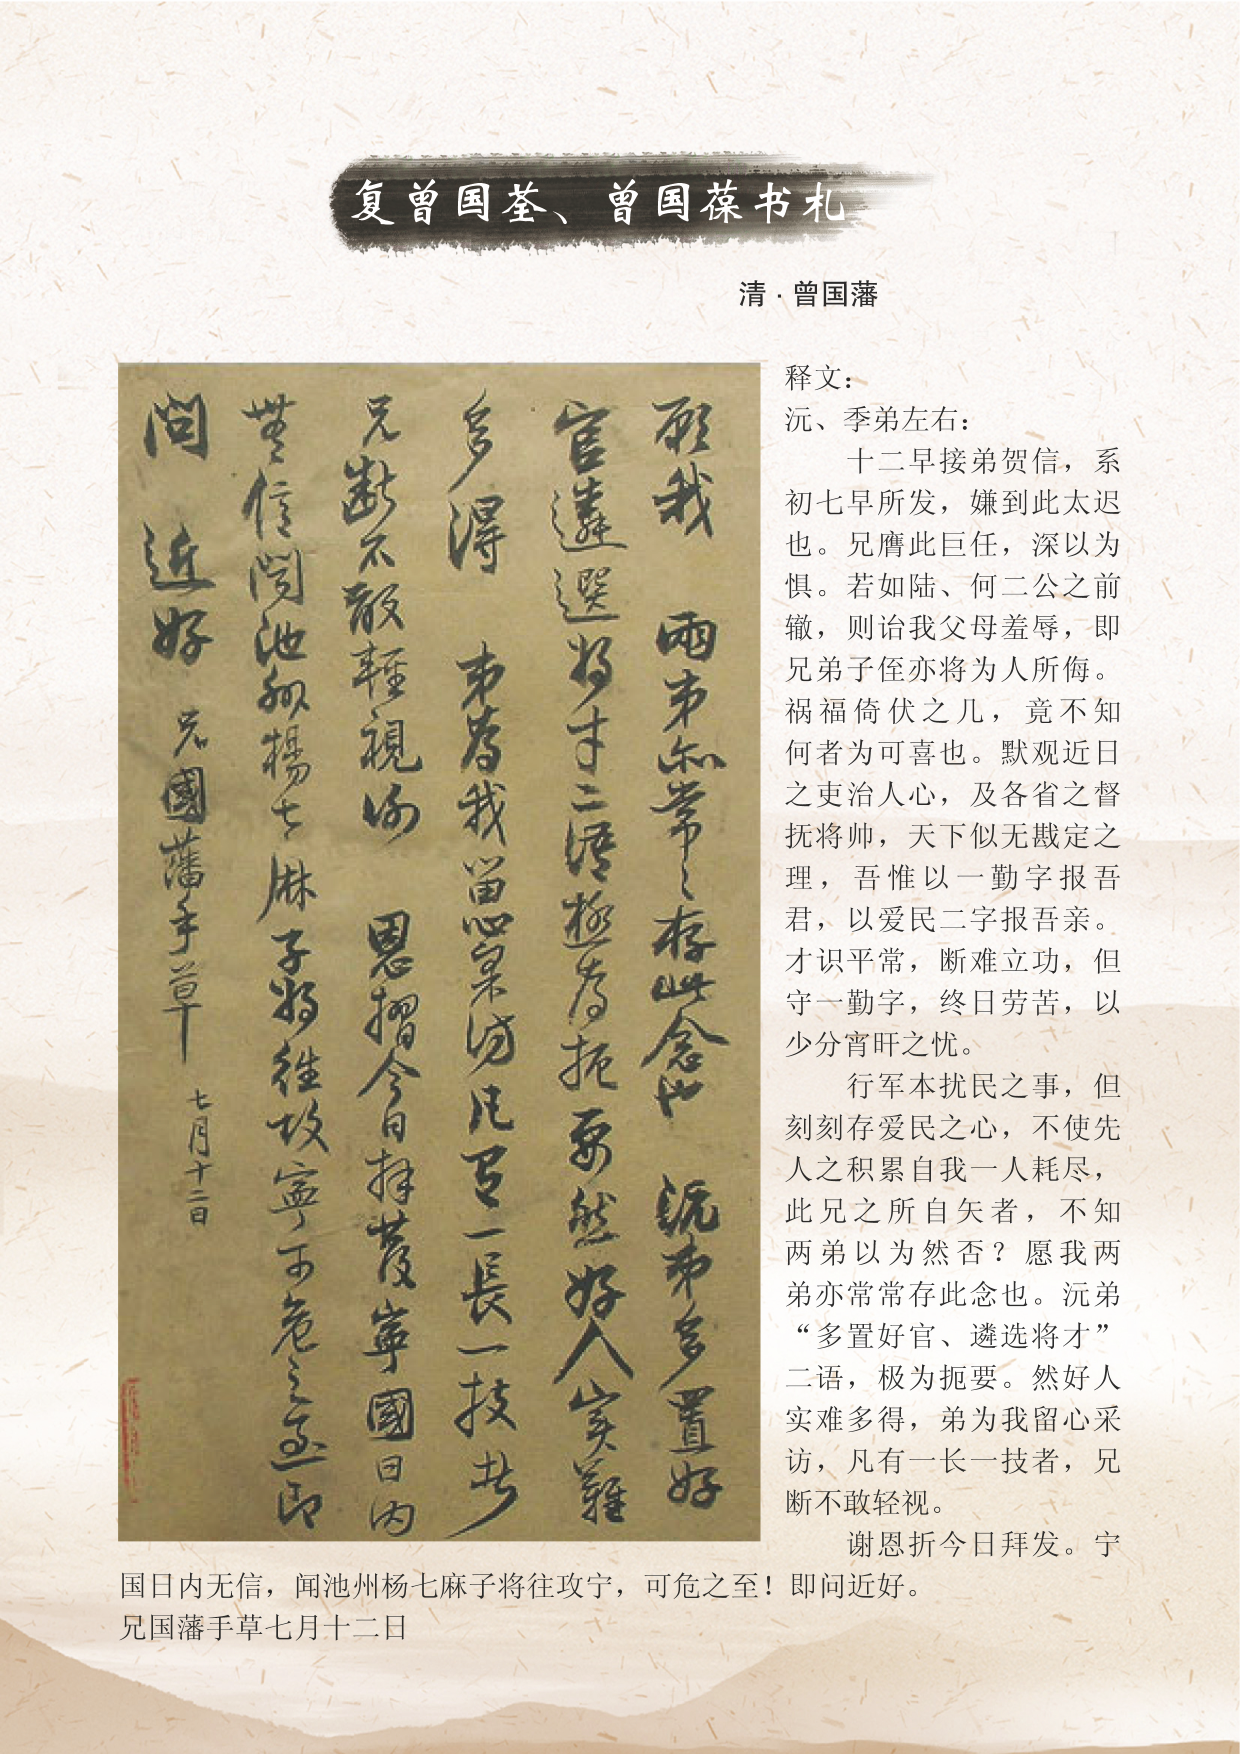 复曾国荃、曾国葆书札
清·曾国藩
願我 兩弟亦常常存此念也 沅弟多置好
官遴選將才二語極為扼要然好人实難
多得 弟為我留心采访凡有一長一技者
兄断不敢輕視 谢 恩摺今日拜發寧國日內
無信聞池州楊七麻子將往攻寧可危之至即
問 近好 兄國藩手草 七月十二日
释文：
沅、季弟左右：
十二早接弟贺信，系
初七早所发，嫌到此太迟
也。兄膺此巨任，深以为
惧。若如陆、何二公之前
辙，则诒我父母羞辱，即
兄弟子侄亦将为人所侮。
祸福倚伏之几，竟不知
何者为可喜也。默观近日
之吏治人心，及各省之督
抚将帅，天下似无戡定之
理，吾惟以一勤字报吾
君，以爱民二字报吾亲。
才识平常，断难立功，但
守一勤字，终日劳苦，以
少分宵旰之忧。
行军本扰民之事，但
刻刻存爱民之心，不使先
人之积累自我一人耗尽，
此兄之所自矢者，不知
两弟以为然否？愿我两
弟亦常常存此念也。沅弟
“多置好官、遴选将才”
二语，极为扼要。然好人
实难多得，弟为我留心采
访，凡有一长一技者，兄
断不敢轻视。
谢恩折今日拜发。宁
国日内无信，闻池州杨七麻子将往攻宁，可危之至！即问近好。
兄国藩手草七月十二日